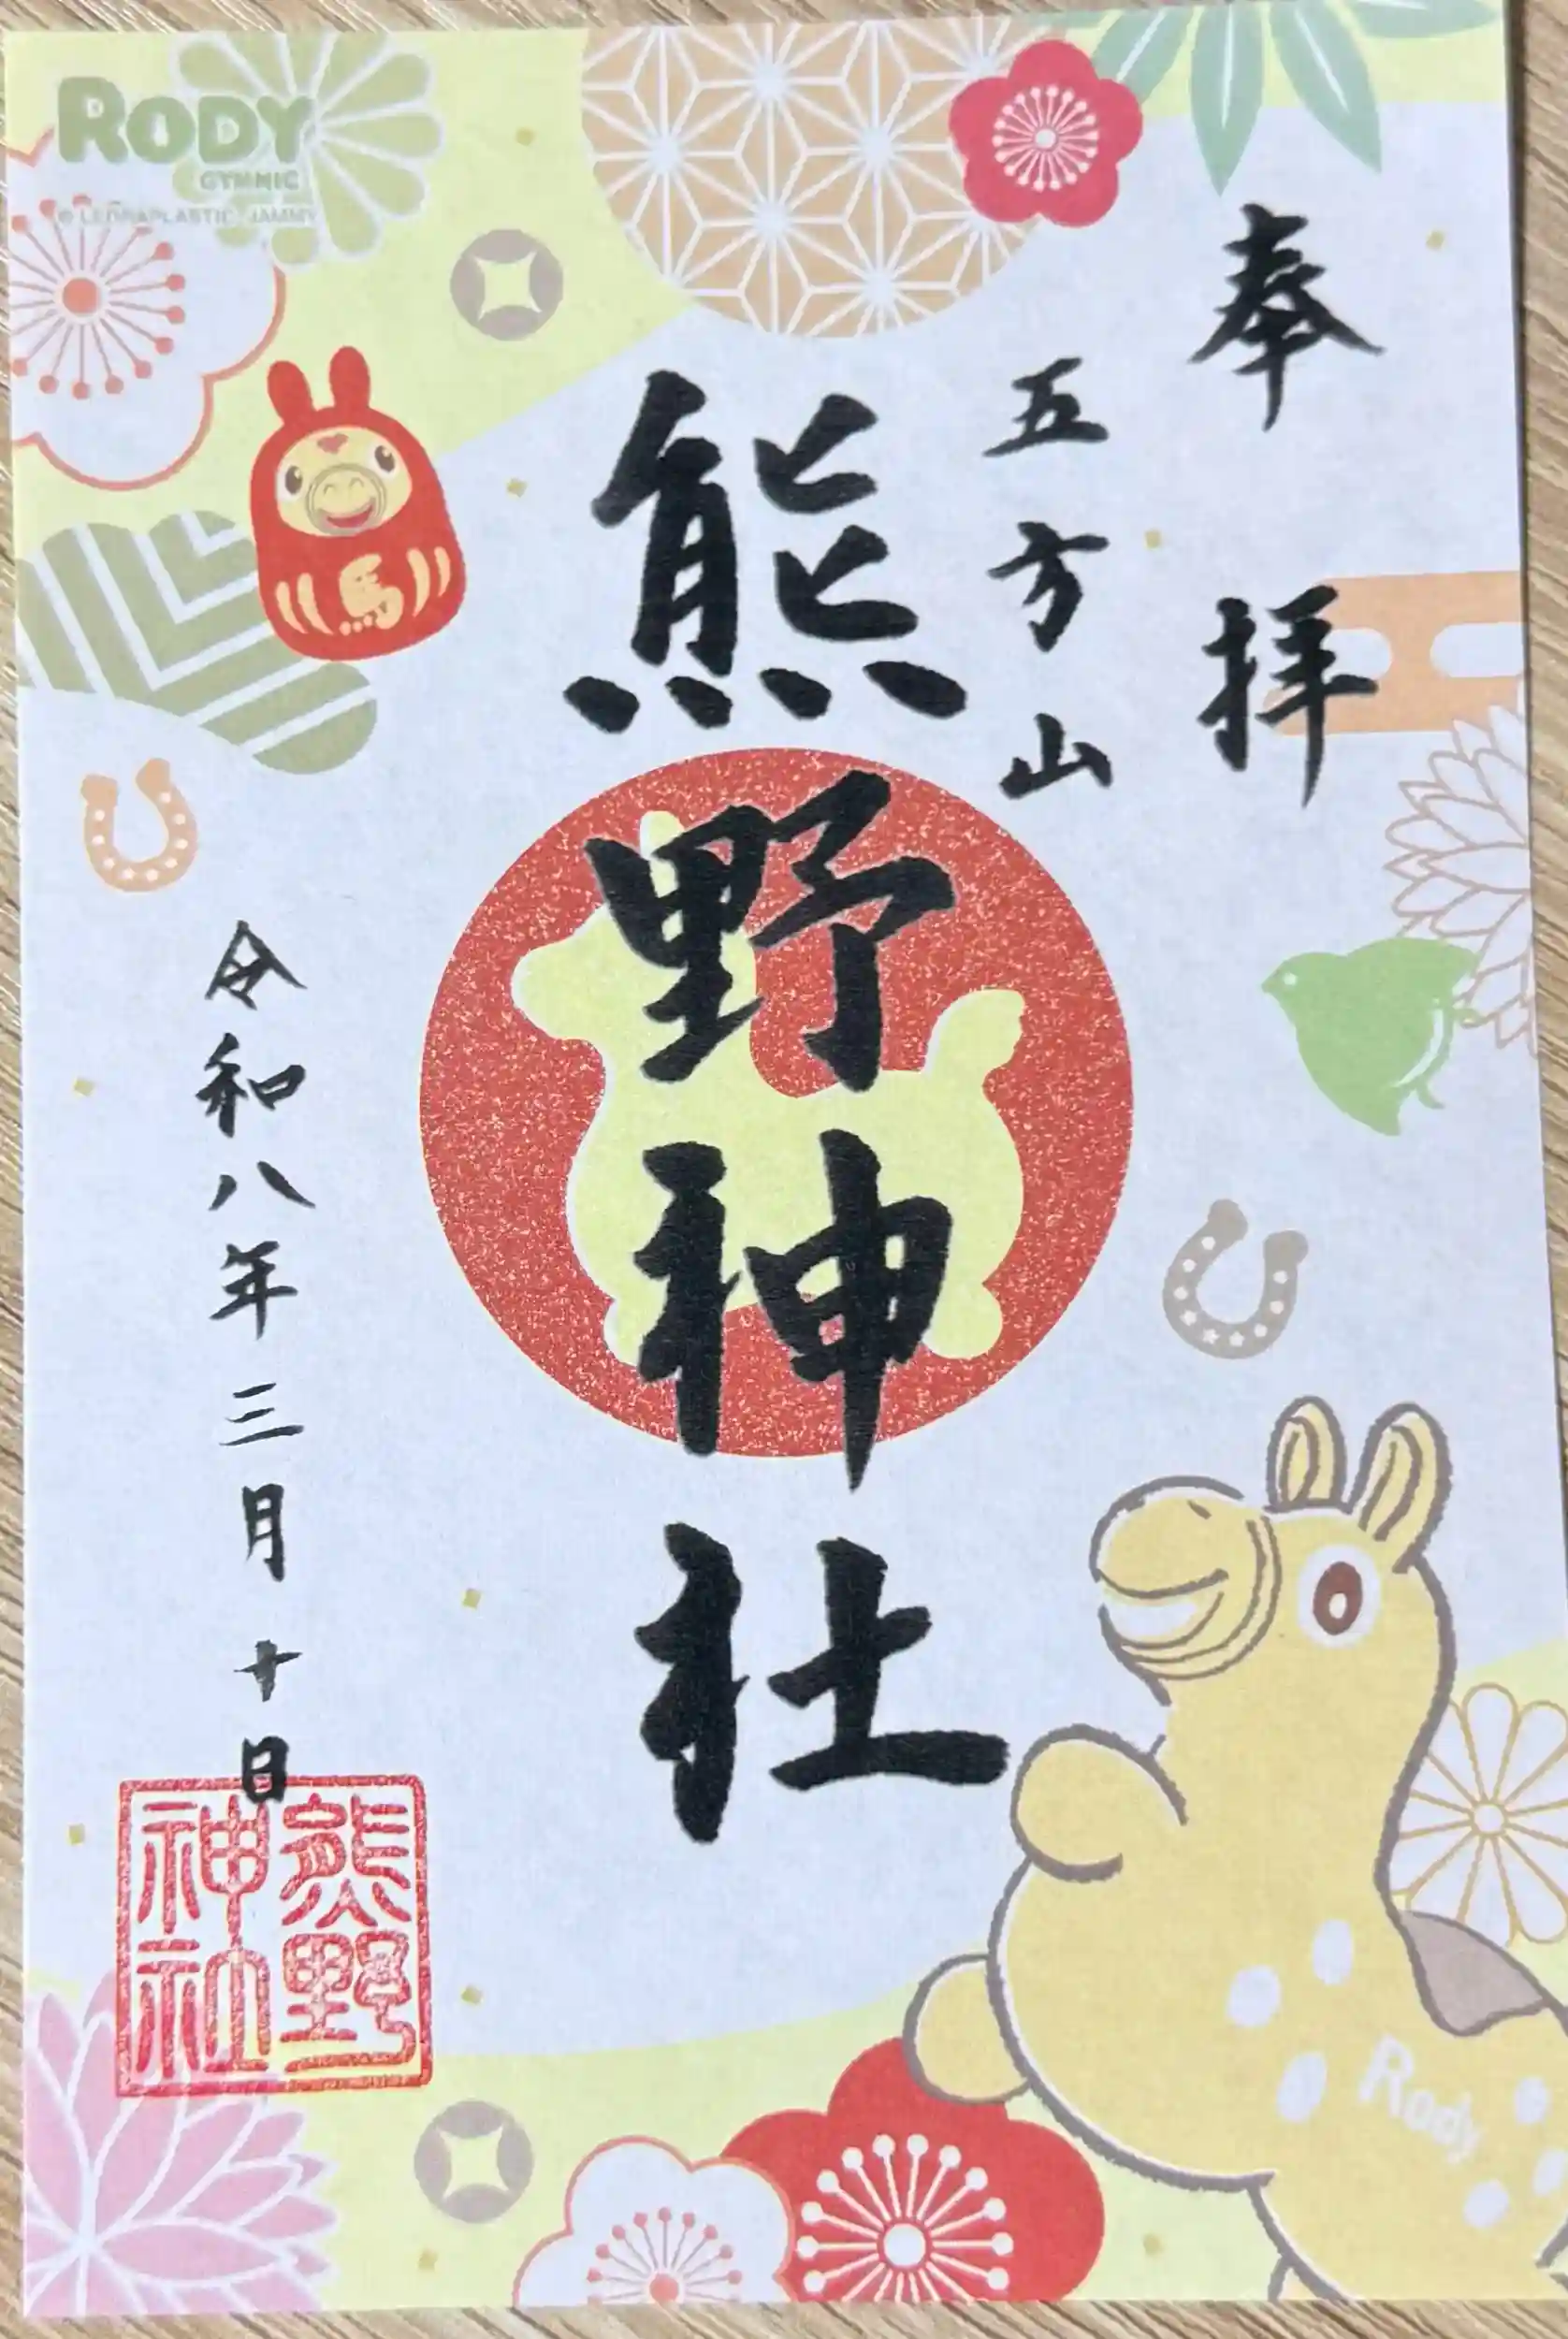 RODY
GYMNIC
© LEDRAPLASTIC, JAMMY
奉拝
五方山
熊野神社
馬
令和八年三月十日
熊野
神社
Rody